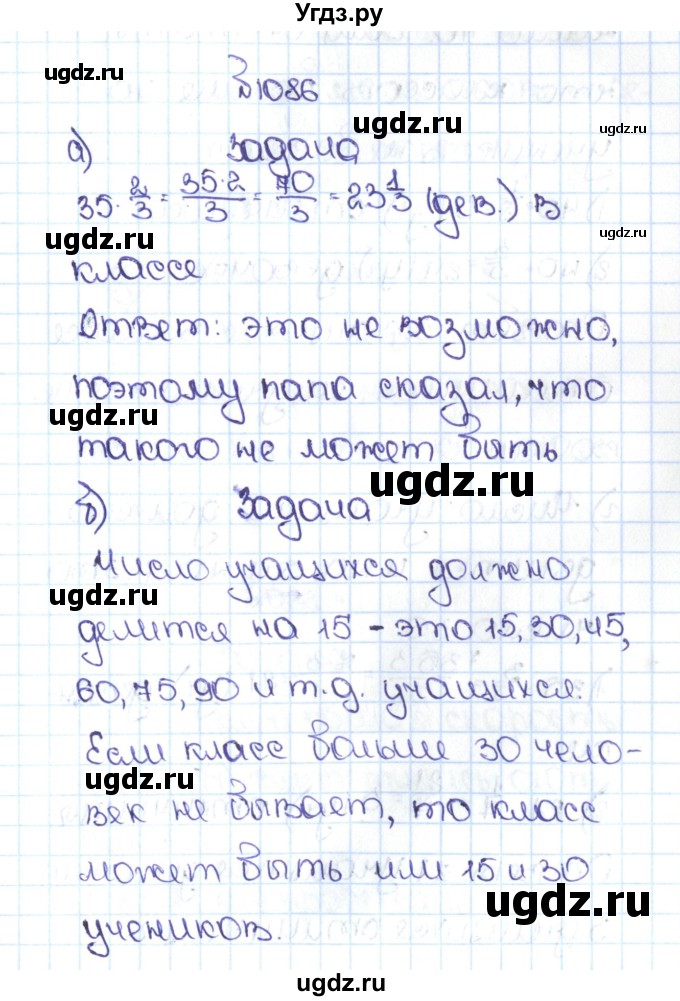 Угдз.ру
ugdz.ru
№1086
ugdz.ru
ugdz.ru
а) Задача
35 · 2/3 = 35·2/3 = 70/3 = 23 1/3 (дев.) в
ugdz.ru
ugdz.ru
классе
Ответ: это не возможно,
поэтому папа сказал, что
ugdz.ru
такого не может быть
ugdz.ru
б) Задача
Число учащихся должно
ugdz.ru
делится на 15 – это 15, 30, 45,
60, 75, 90 и т.д. учащихся.
Если класс больше 30 чело-
ugdz.ru
век не бывает, то класс
может быть или 15 и 30
ugdz.ru
учеников.
ugdz.ru